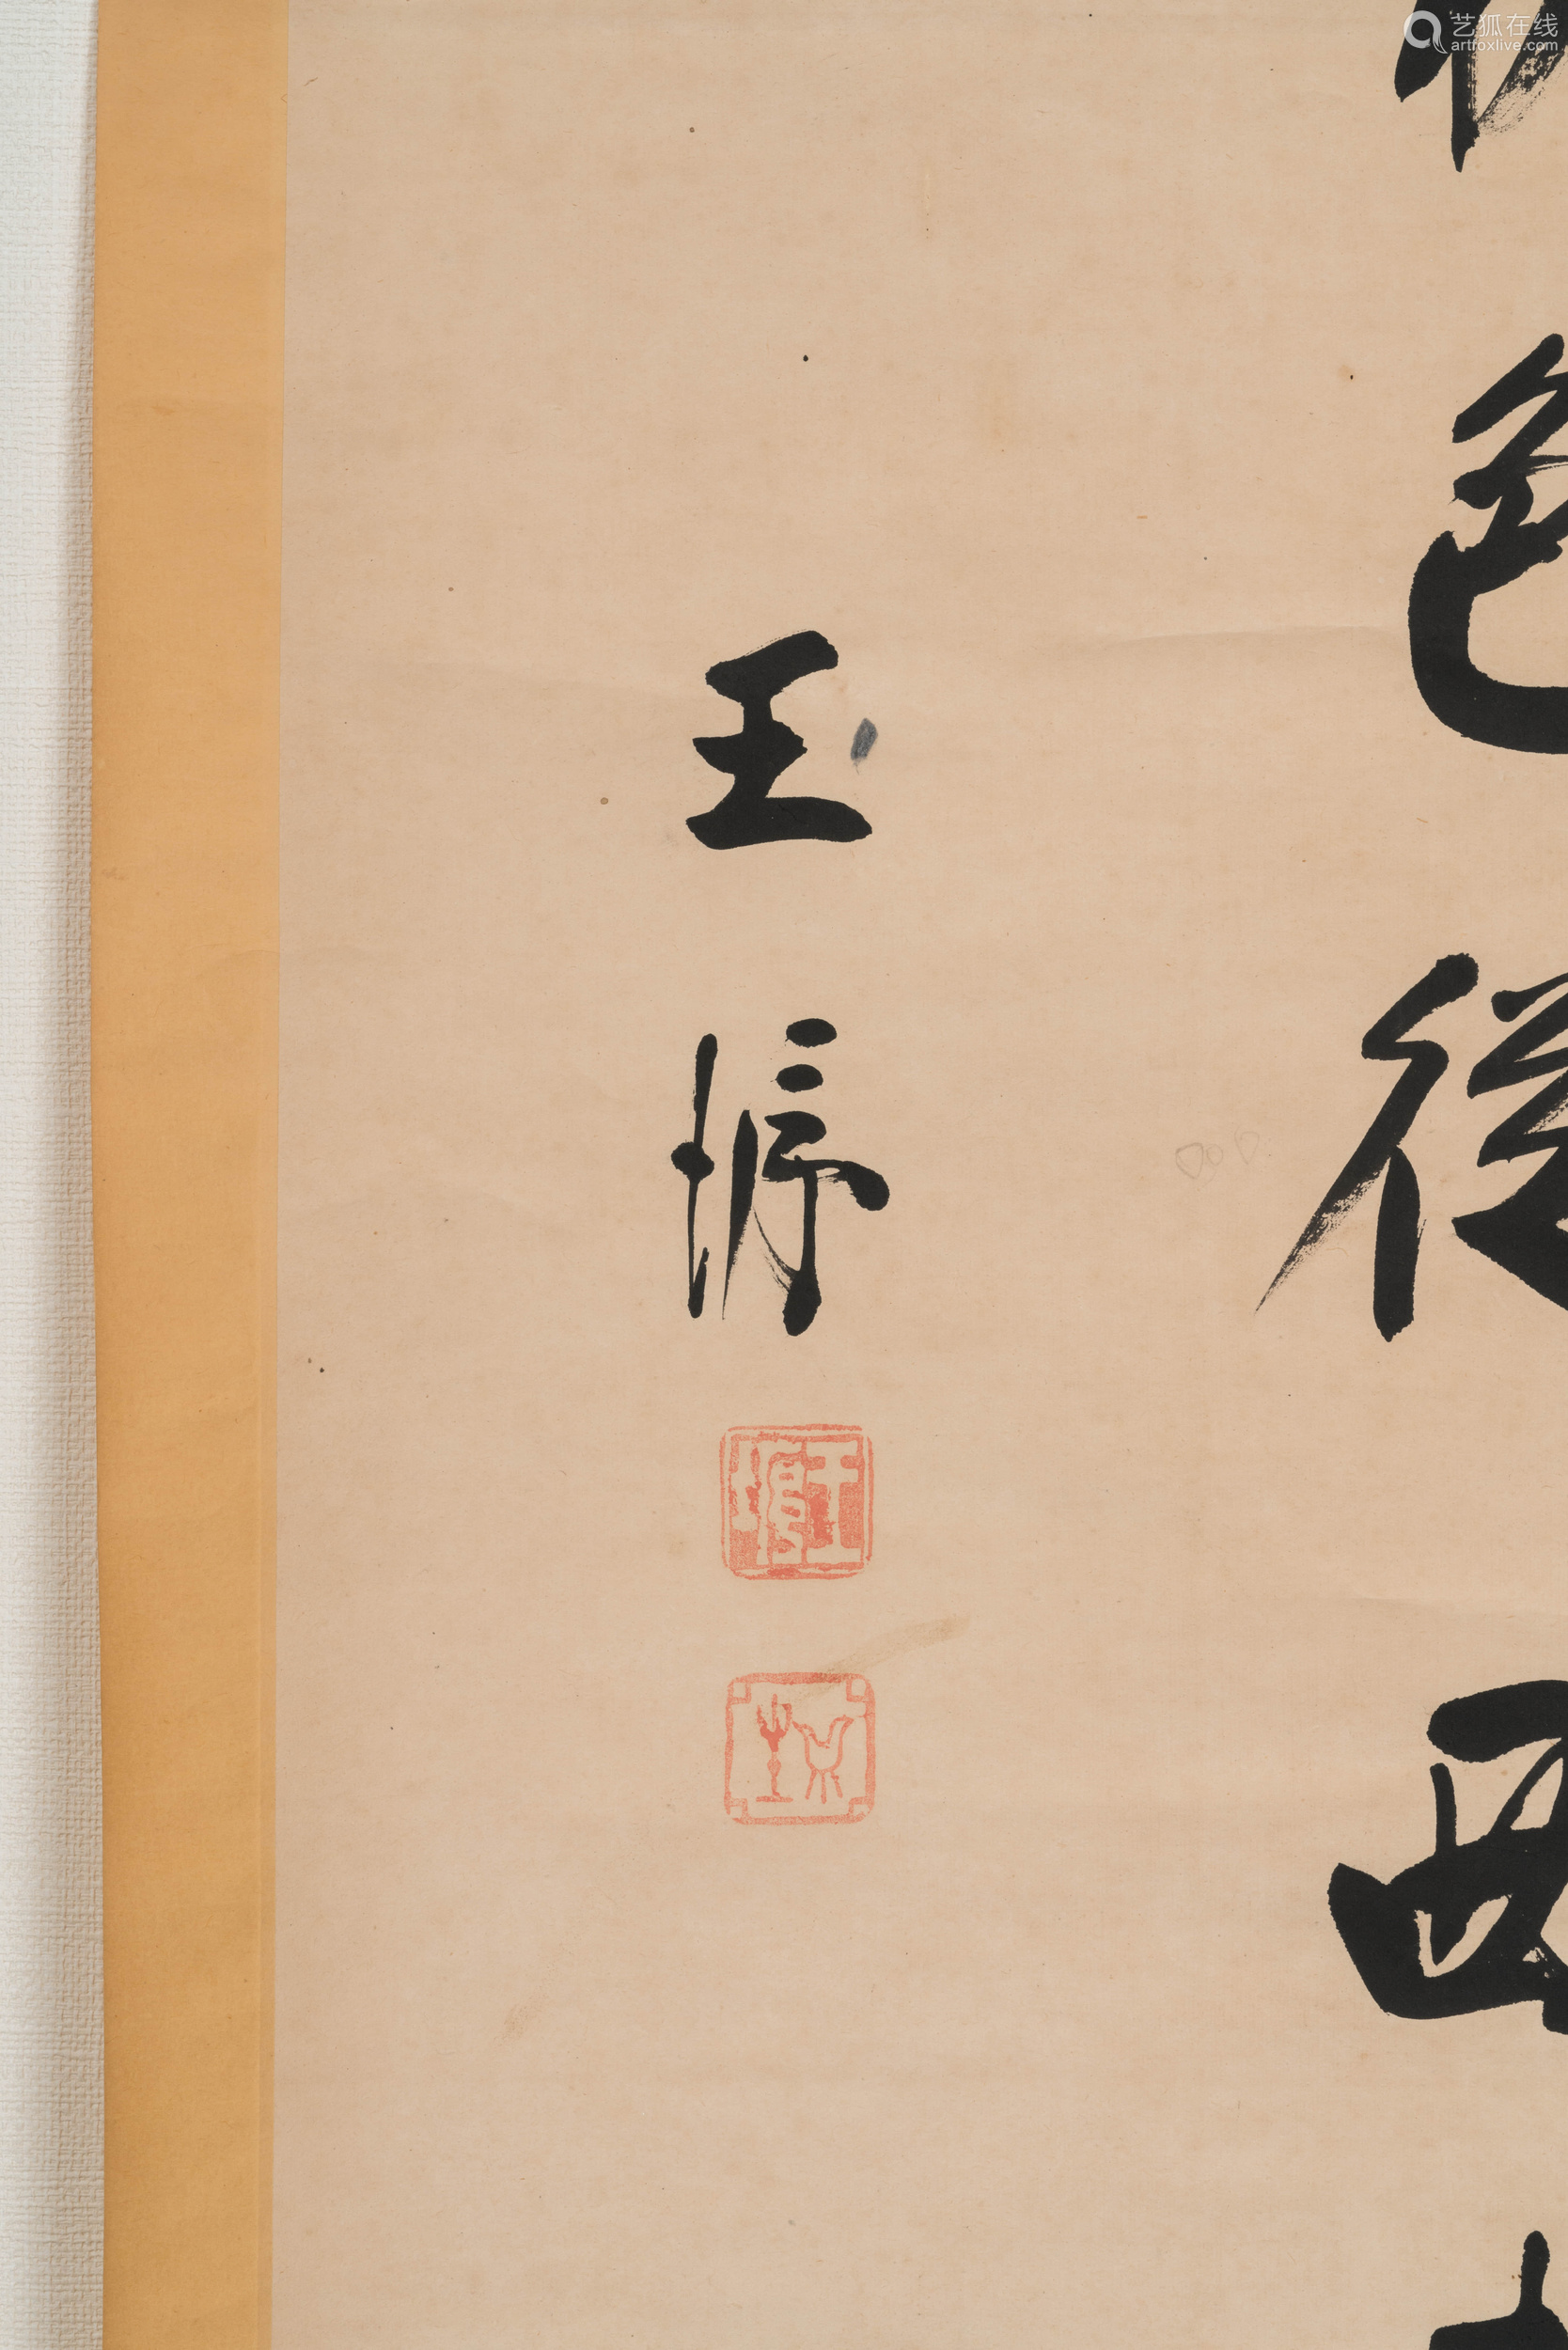 艺狐在线
artfoxlive.com
色從西
王垿
王垿